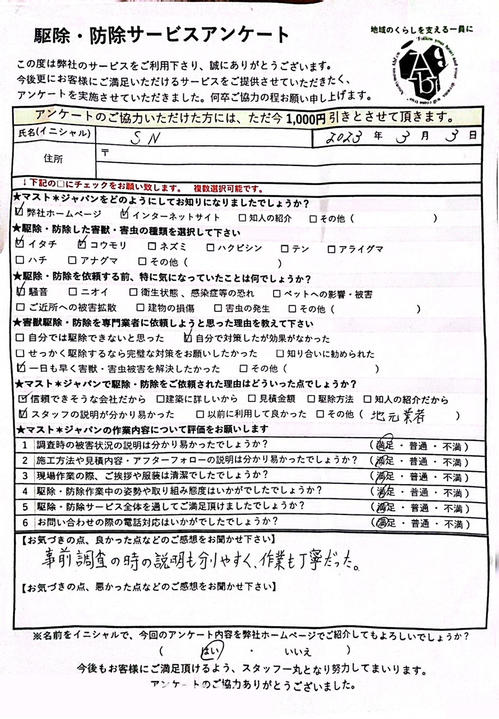 駆除・防除サービスアンケート
地域のくらしを支える一員に
この度は弊社のサービスをご利用下さり、誠にありがとうございます。
今後更にお客様にご満足いただけるサービスをご提供させていただきたく、
アンケートを実施させていただきました。何卒ご協力の程お願い申し上げます。
アンケートのご協力いただけた方には、ただ今1,000円引きとさせて頂きます。
氏名(イニシャル) SN 2023年 3月 3日
住所 〒
↓下記の□にチェックをお願い致します。 複数選択可能です。
★マスト*ジャパンをどのようにしてお知りになりましたでしょうか?
☑弊社ホームページ ☑インターネットサイト □知人の紹介 □その他( )
★駆除・防除した害獣・害虫の種類を選択して下さい
☑イタチ ☑コウモリ □ネズミ □ハクビシン □テン □アライグマ
□ハチ □アナグマ □その他( )
★駆除・防除を依頼する前、特に気になっていたことは何でしょうか?
☑騒音 □ニオイ □衛生状態、感染症等の恐れ □ペットへの影響・被害
□ご近所への被害拡散 □建物の損傷 □害虫の発生 □その他( )
★害獣駆除・防除を専門業者に依頼しようと思った理由を教えて下さい
□自分では駆除できないと思った ☑自分で対策したが効果がなかった
□せっかく駆除するなら完璧な対策をお願いしたかった □知り合いに勧められた
☑一日も早く害獣・害虫被害を解決したかった □その他( )
★マスト*ジャパンで駆除・防除をご依頼された理由はどういった点でしょうか?
☑信頼できそうな会社だから □建築に詳しいから □見積金額 □駆除方法 □知人の紹介だから
☑スタッフの説明が分かり易かった □以前に利用して良かった □その他(地元業者)
★マスト*ジャパンの作業内容について評価をお願いします
1 調査時の被害状況の説明は分かり易かったでしょうか? (満足・普通・不満)
2 施工方法や見積内容・アフターフォローの説明は分かり易かったでしょうか? (満足・普通・不満)
3 現場作業の際、ご挨拶や服装は清潔でしたでしょうか? (満足・普通・不満)
4 駆除・防除作業中の姿勢や取り組み態度はいかがでしたでしょうか? (満足・普通・不満)
5 駆除・防除サービス全体を通してご満足頂けましたでしょうか? (満足・普通・不満)
6 お問い合わせの際の電話対応はいかがでしたでしょうか? (満足・普通・不満)
【お気づきの点、良かった点などのご感想をお聞かせ下さい】
事前調査の時の説明も分りやすく、作業も丁寧だった。
【お気づきの点、悪かった点などのご感想をお聞かせ下さい】
※名前をイニシャルで、今回のアンケート内容を弊社ホームページでご紹介してもよろしいでしょうか?
( はい ・ いいえ )
今後もお客様にご満足頂けるよう、スタッフ一丸となり努力してまいります。
アンケートのご協力ありがとうございました。